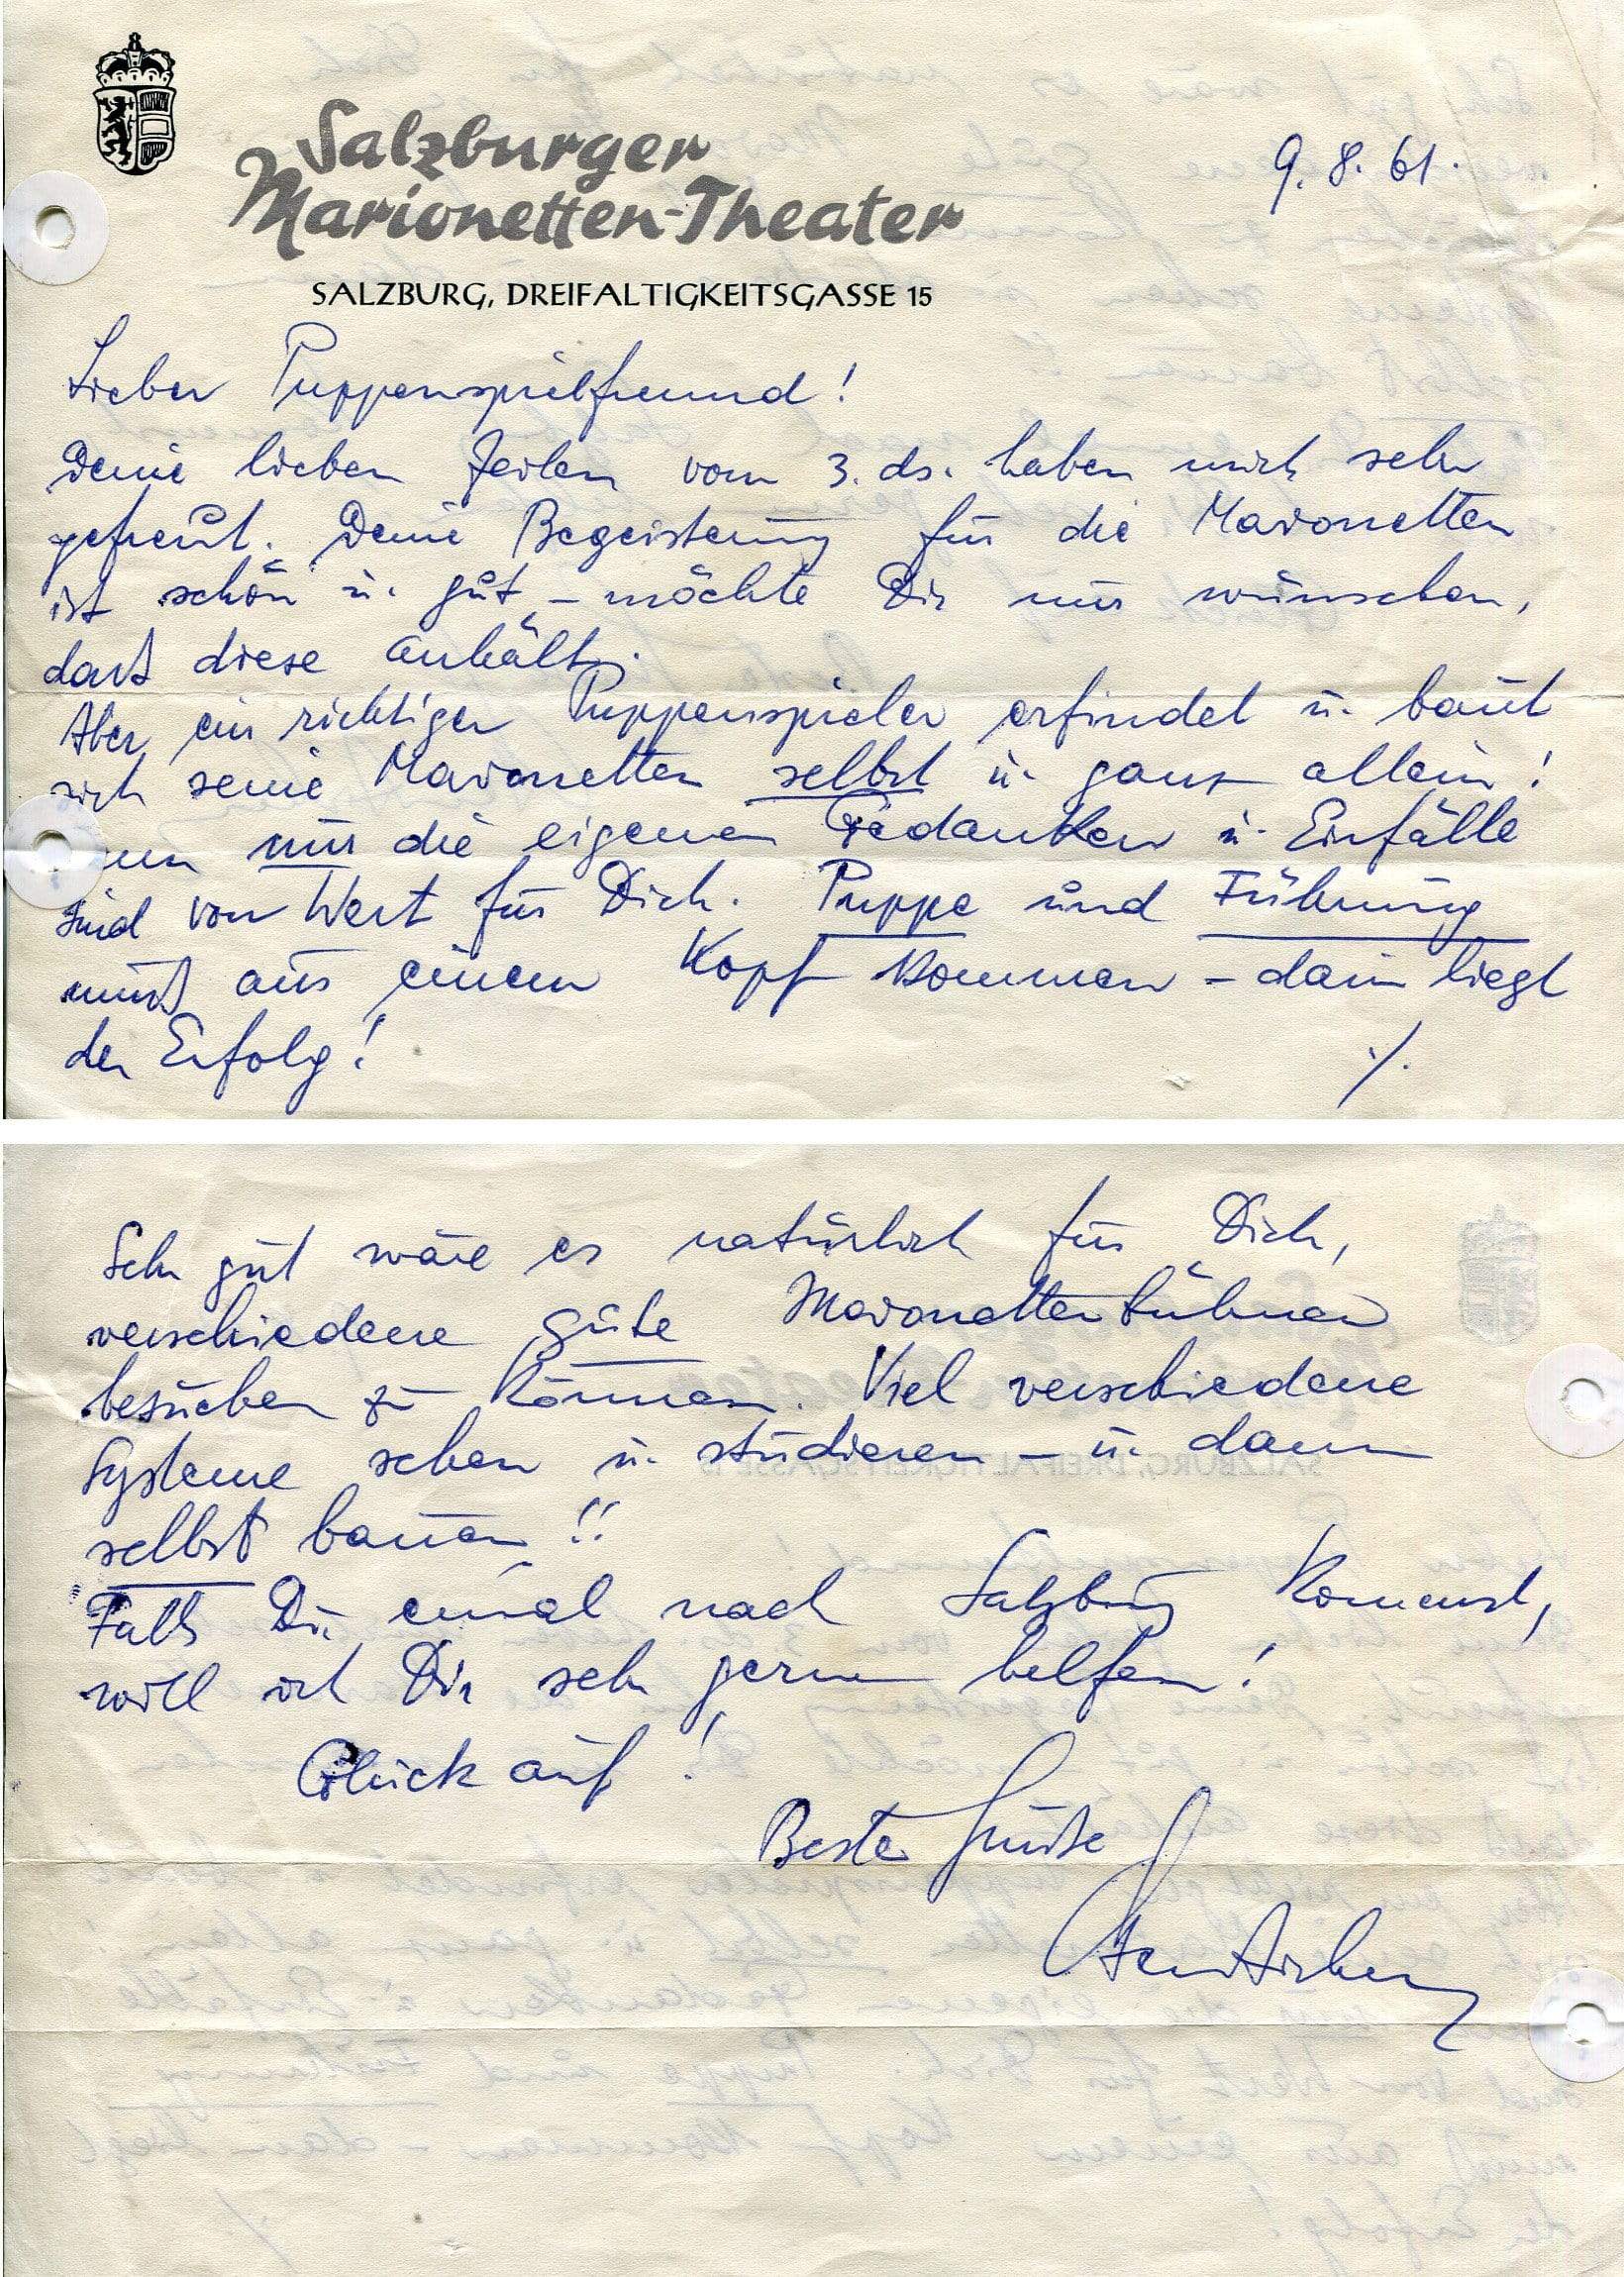 Salzburger
Marionetten-Theater
SALZBURG, DREIFALTIGKEITSGASSE 15
9. 8. 61.
Lieber Puppenspielfreund!
Deine lieben Zeilen vom 3. ds. haben mich sehr
gefreut. Deine Begeisterung für die Marionetten
ist schön u. gut – möchte Dir nur wünschen,
daß diese anhält.
Aber ein richtiger Puppenspieler erfindet u. baut
sich seine Marionetten selbst u. ganz allein!
nur die eigenen Gedanken u. Einfälle
sind von Wert für Dich. Puppe und Führung
muß aus einem Kopf kommen – darin liegt
der Erfolg!
./.
Sehr gut wäre es natürlich für Dich,
verschiedene gute Marionettenbühnen
besuchen zu können. Viel verschiedene
Systeme sehen u. studieren – u. dann
selbst bauen!!
Falls Du einmal nach Salzburg kommst,
will ich Dir sehr gerne helfen!
Glück auf!
Beste Grüße